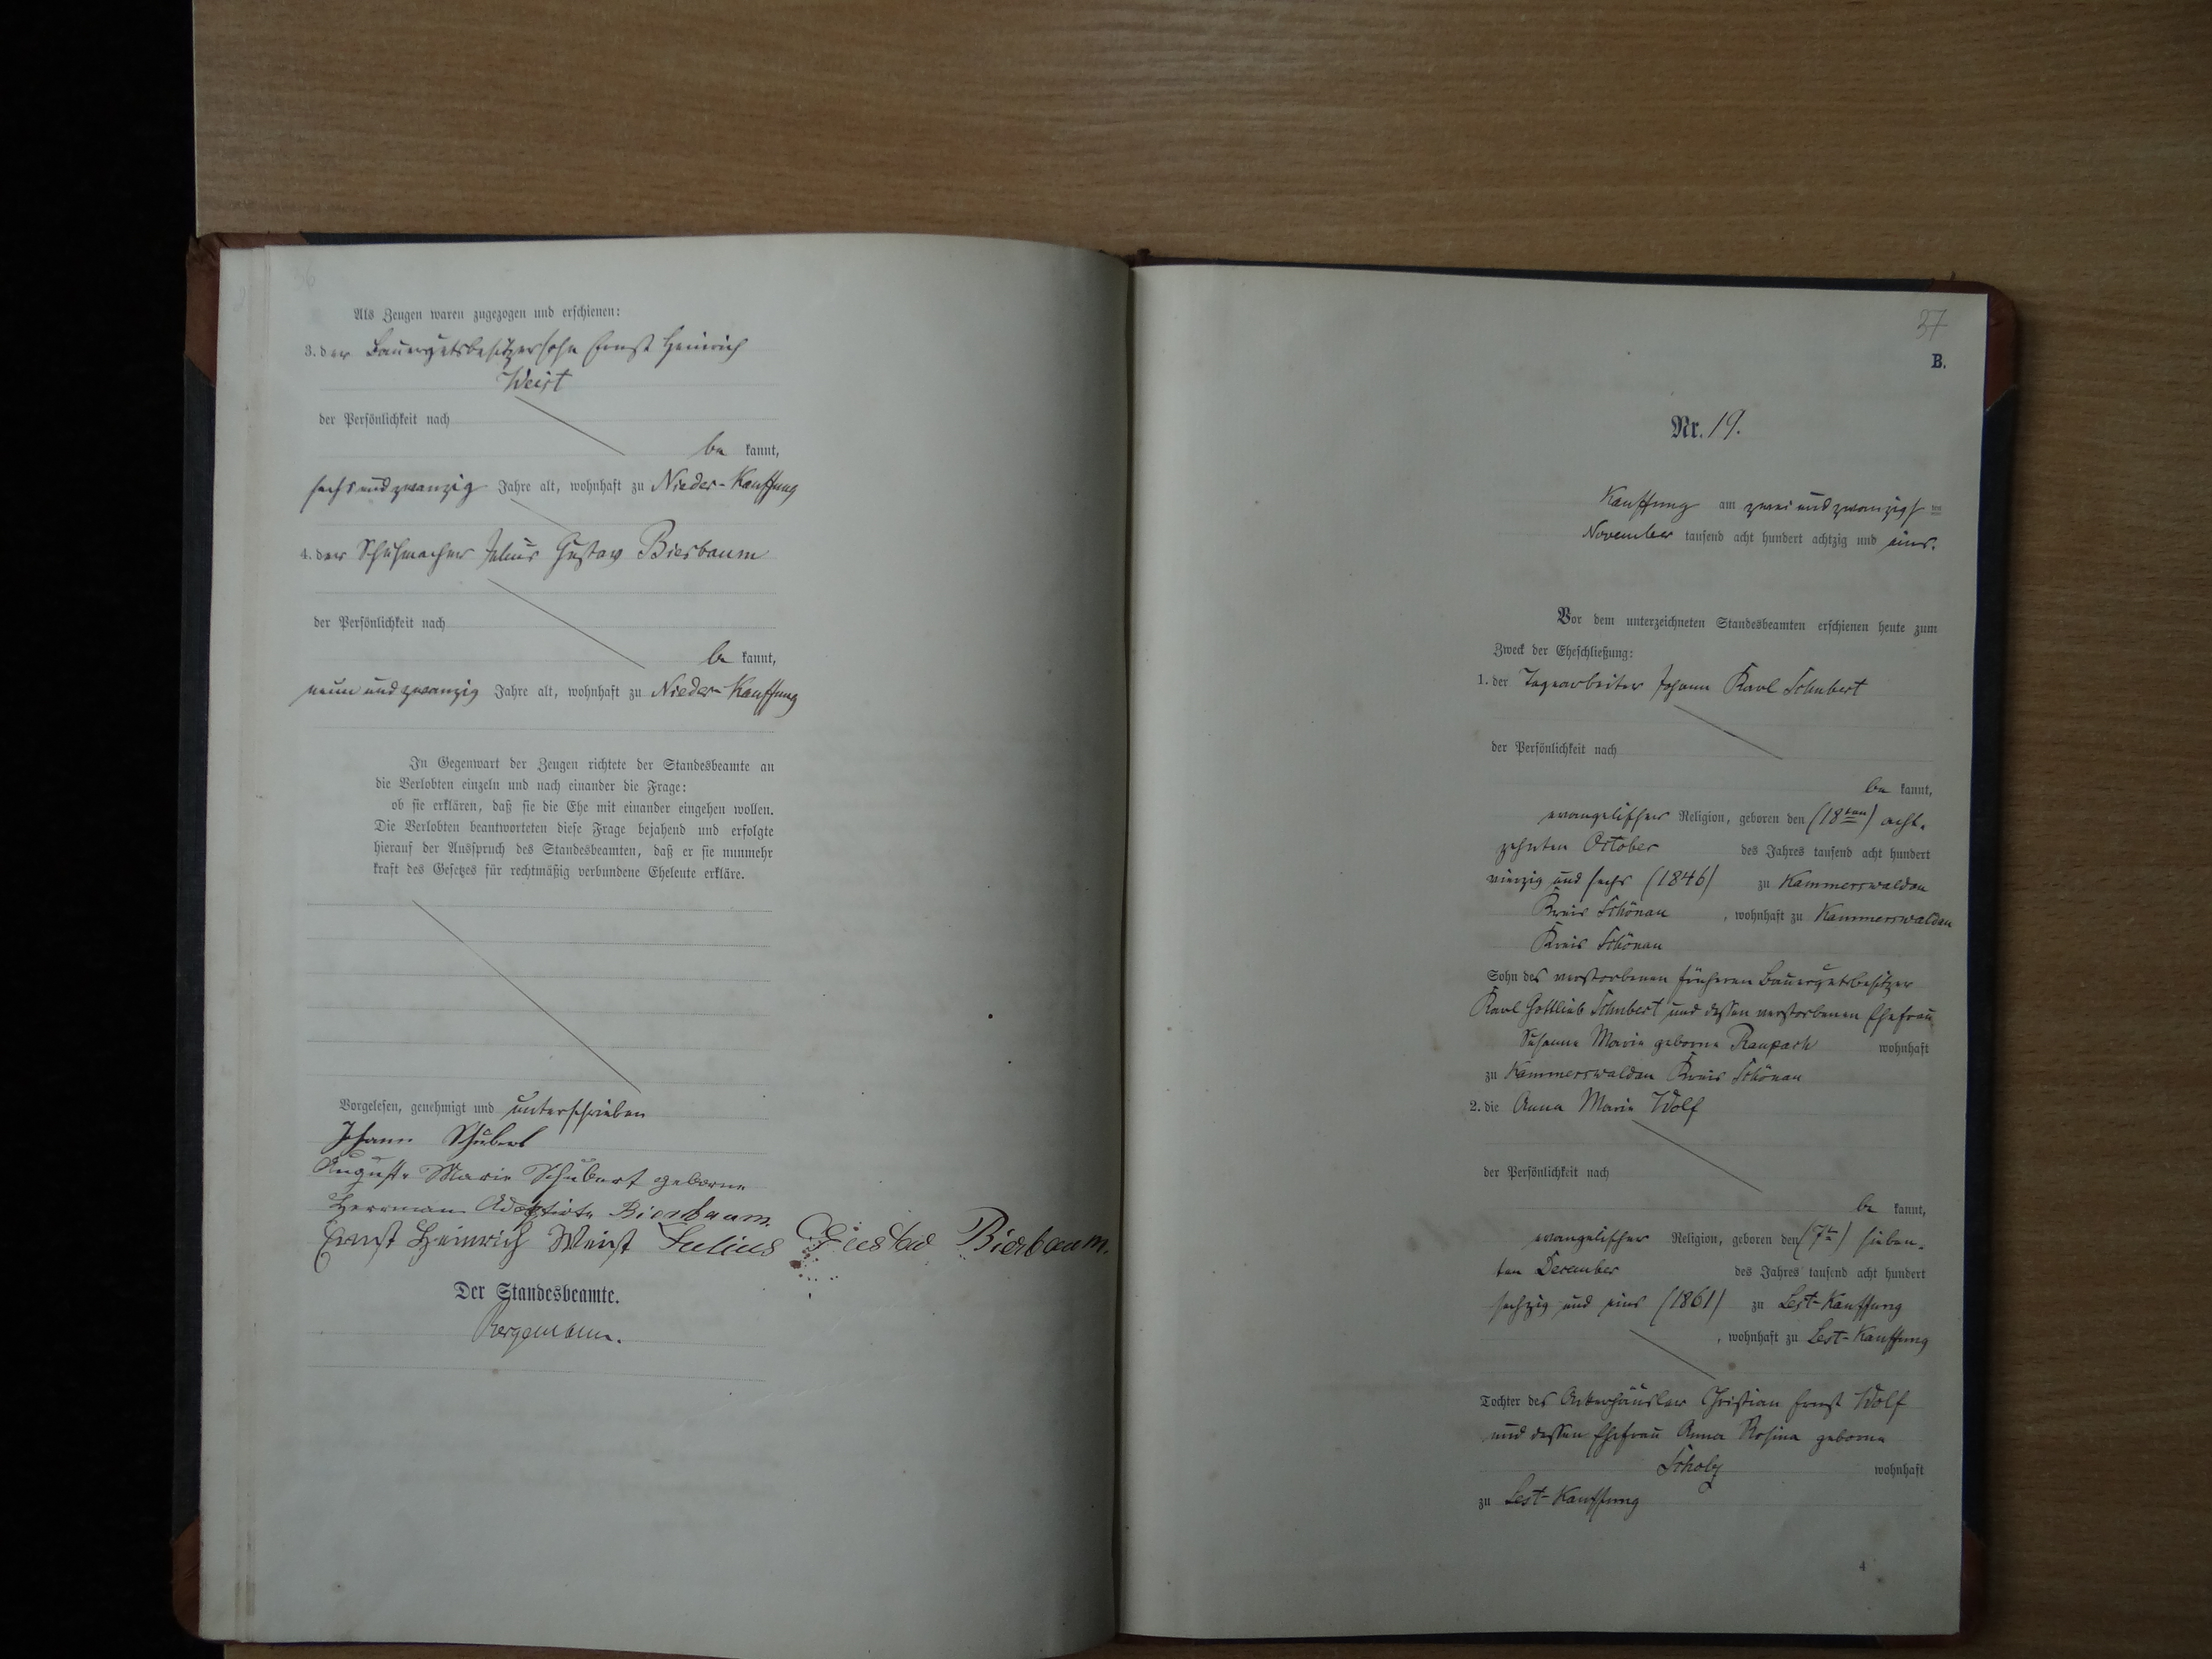 36
Als Zeugen waren zugezogen und erschienen:
3. der Bauergutsbesitzersohn Ernst Heinrich
Weist
der Persönlichkeit nach
be kannt,
sechs und zwanzig Jahre alt, wohnhaft zu Nieder-Kauffung
4. der Schuhmacher Julius Gustav Bierbaum
der Persönlichkeit nach
be kannt,
neun und zwanzig Jahre alt, wohnhaft zu Nieder-Kauffung
In Gegenwart der Zeugen richtete der Standesbeamte an
die Verlobten einzeln und nach einander die Frage:
ob sie erklären, daß sie die Ehe mit einander eingehen wollen.
Die Verlobten beantworteten diese Frage bejahend und erfolgte
hierauf der Ausspruch des Standesbeamten, daß er sie nunmehr
kraft des Gesetzes für rechtmäßig verbundene Eheleute erkläre.
Vorgelesen, genehmigt und unterschrieben
Johann Schubert
Auguste Marie Schubert geborne
Herrman Adoptirte Bierbaum.
Ernst Heinrich Weist Julius Gustav Bierbaum.
Der Standesbeamte.
Bergemann.
37
B.
Nr. 19.
Kauffung am zwei und zwanzigsten
November tausend acht hundert achtzig und eins.
Vor dem unterzeichneten Standesbeamten erschienen heute zum
Zweck der Eheschließung:
1. der Tagearbeiter Johann Karl Schubert
der Persönlichkeit nach
be kannt,
evangelischer Religion, geboren den (18ten) acht-
zehnten October des Jahres tausend acht hundert
vierzig und sechs (1846) zu Kammerswaldau
Kreis Schönau, wohnhaft zu Kammerswaldau
Kreis Schönau
Sohn des verstorbenen früheren Bauergutsbesitzer
Karl Gottlieb Schubert und dessen verstorbenen Ehefrau
Susanne Marie geborne Raupach wohnhaft
zu Kammerswaldau Kreis Schönau
2. die Anna Marie Wolf
der Persönlichkeit nach
be kannt,
evangelischer Religion, geboren den (7t) sieben-
ten December des Jahres tausend acht hundert
sechzig und eins (1861) zu Lest-Kauffung
, wohnhaft zu Lest-Kauffung
Tochter des Ackerhäusler Christian Ernst Wolf
und dessen Ehefrau Anna Rosina geborne
Scholz wohnhaft
zu Lest-Kauffung
4